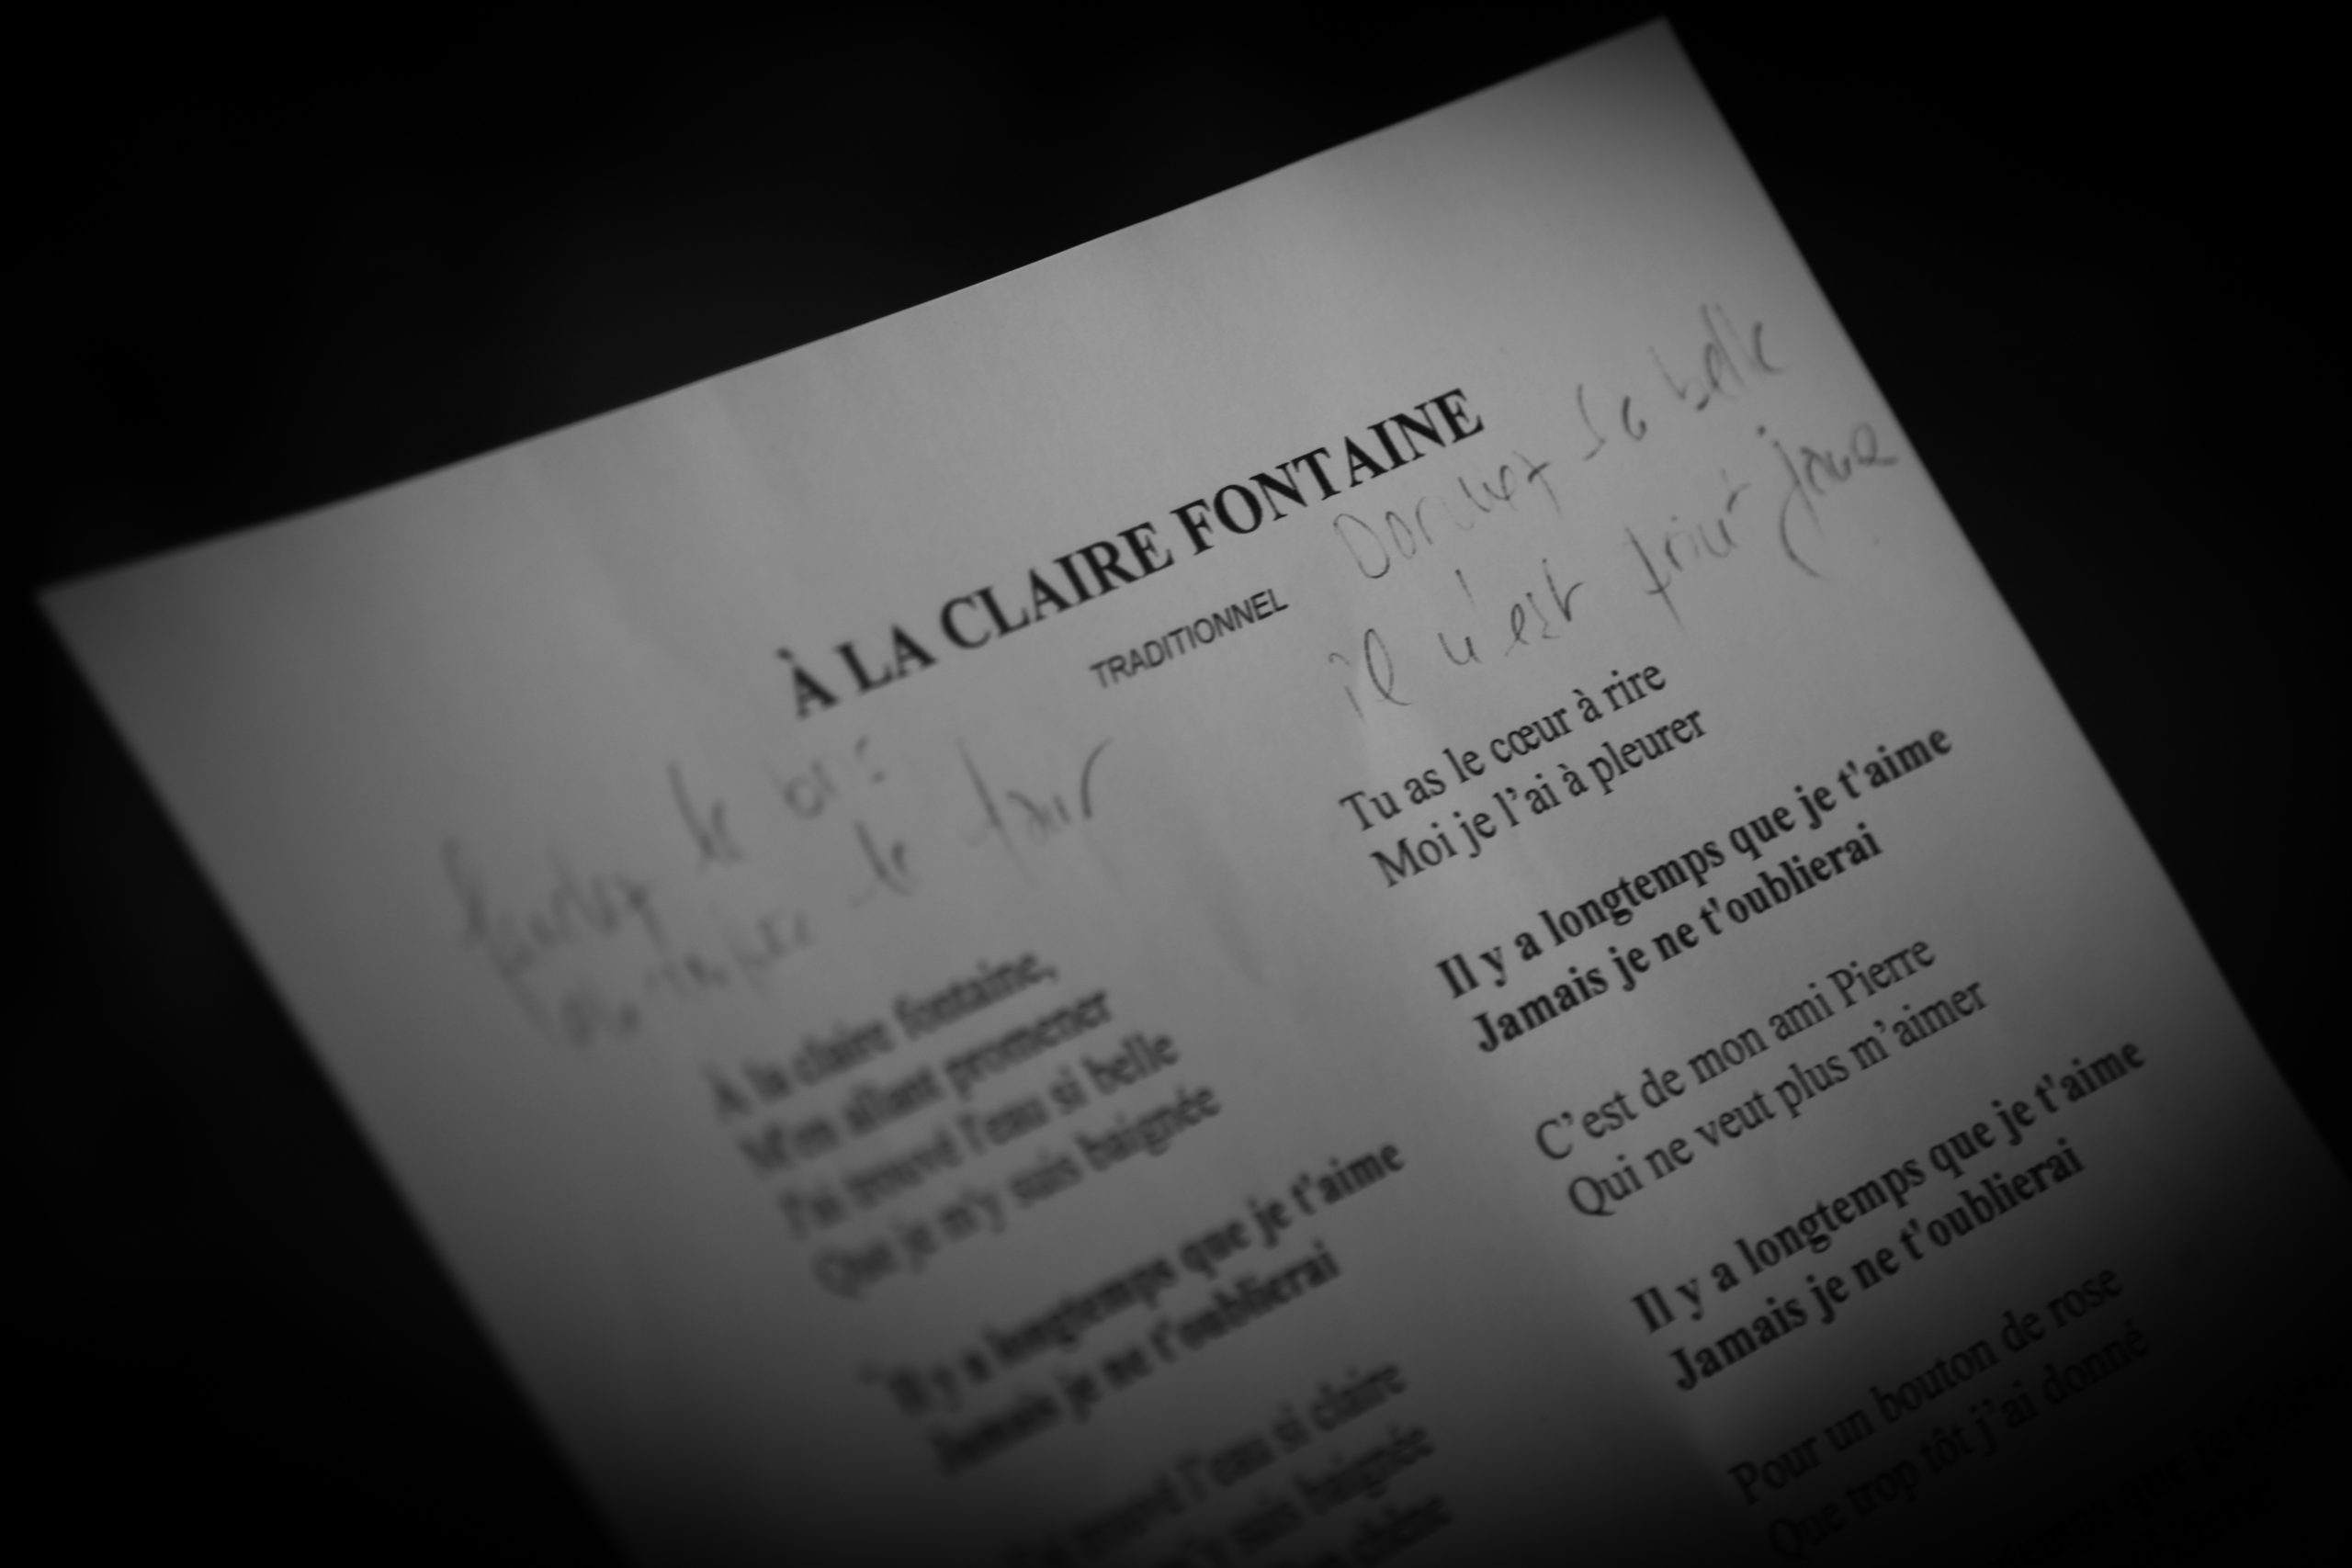 À LA CLAIRE FONTAINE
TRADITIONNEL
le
le four
À la claire fontaine,
M'en allant promener
J'ai trouvé l'eau si belle
Que je m'y suis baignée
Il y a longtemps que je t'aime
Jamais je ne t'oublierai
l'eau si claire
m'y suis baignée
chêne
Dormez la belle
il n'est point jour
Tu as le cœur à rire
Moi je l'ai à pleurer
Il y a longtemps que je t'aime
Jamais je ne t'oublierai
C'est de mon ami Pierre
Qui ne veut plus m'aimer
Il y a longtemps que je t'aime
Jamais je ne t'oublierai
Pour un bouton de rose
Que trop tôt j'ai donné
que je